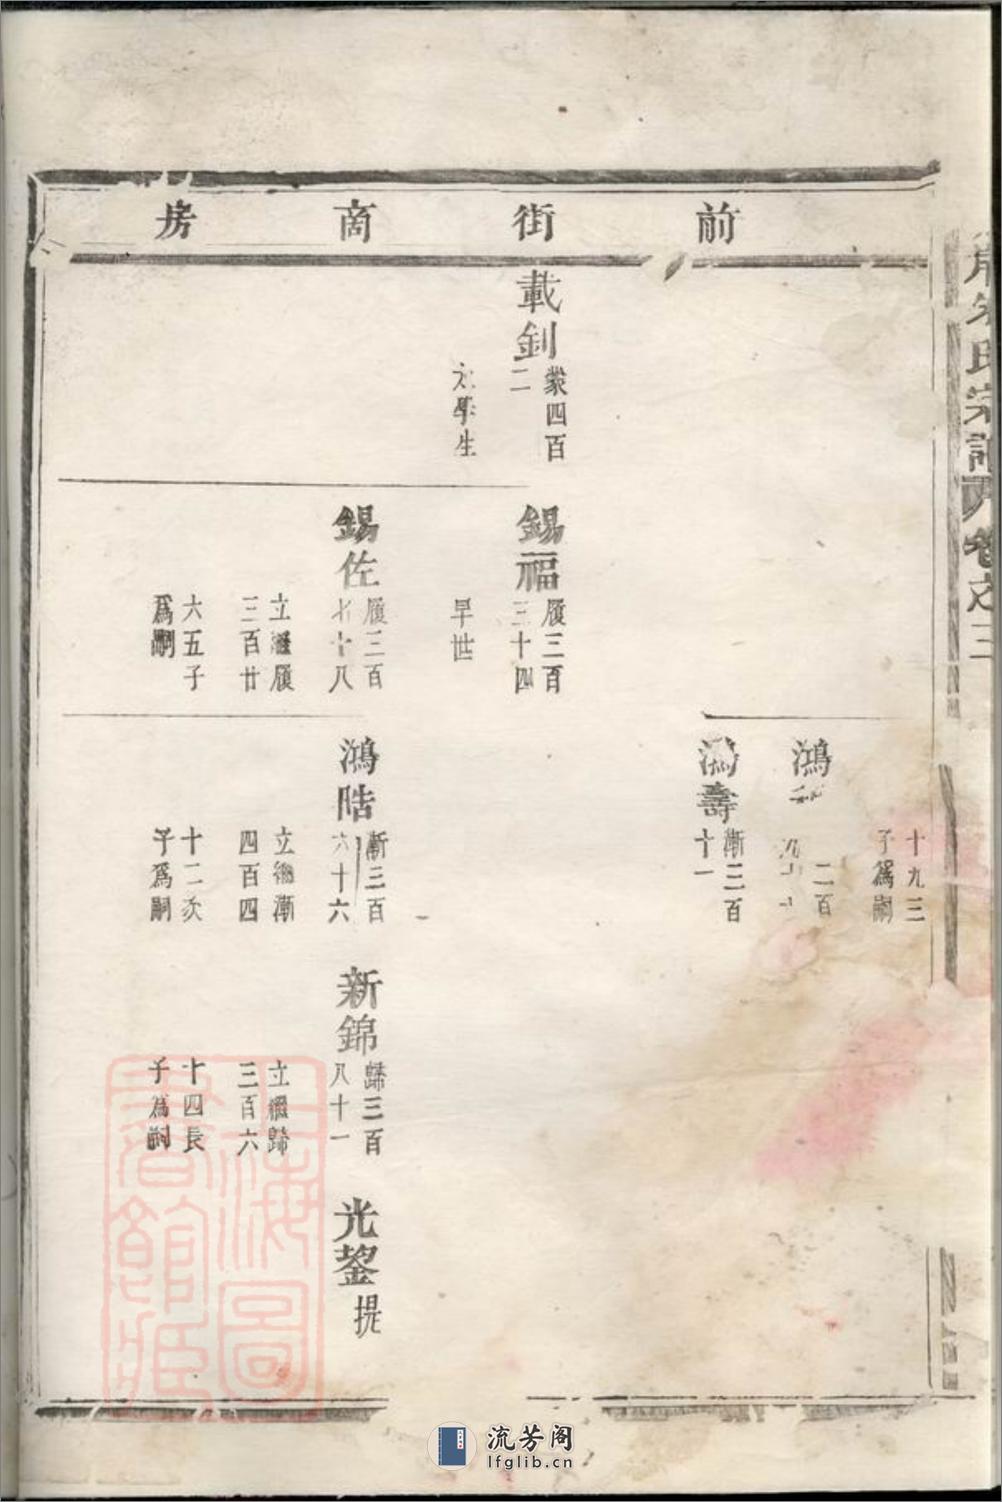 氏宗譜 卷之三
前街啇房
十九三
子爲嗣
鴻
二百
鴻壽
漸三百
十一
載釗
彖四百
二
太學生
錫福
履三百
三十四
早世
錫佐
履三百
七十八
立繼履
三百廿
六五子
爲嗣
鴻晧
漸三百
六十六
立繼漸
四百四
十二次
子爲嗣
新錦
歸三百
八十一
立繼歸
三百六
十四長
子爲嗣
光鋆
提
上海圖
書館臧
流芳阁
lfglib.cn